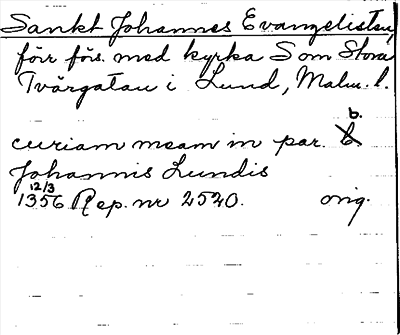 Sankt Johannes Evangelisten,
förr förs. med kyrka S om Stora
Tvärgatan i Lund, Malm. l.
curiam meam in par. b.
Johannis Lundis
12/3
1356 Rep. nr 2520. orig.